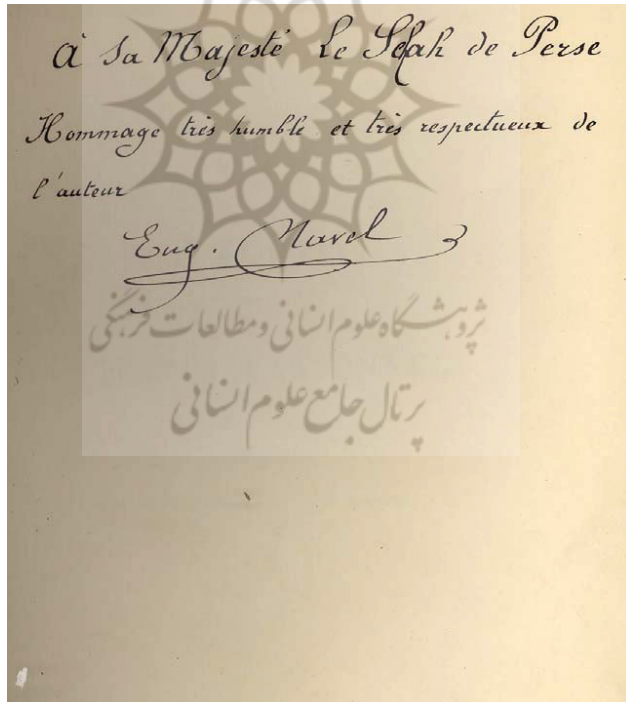 à Sa Majesté Le Schah de Perse
Hommage très humble et très respectueux de
l'auteur
Eug. Navel
پژوهشگاه علوم انسانی و مطالعات فرهنگی
پرتال جامع علوم انسانی